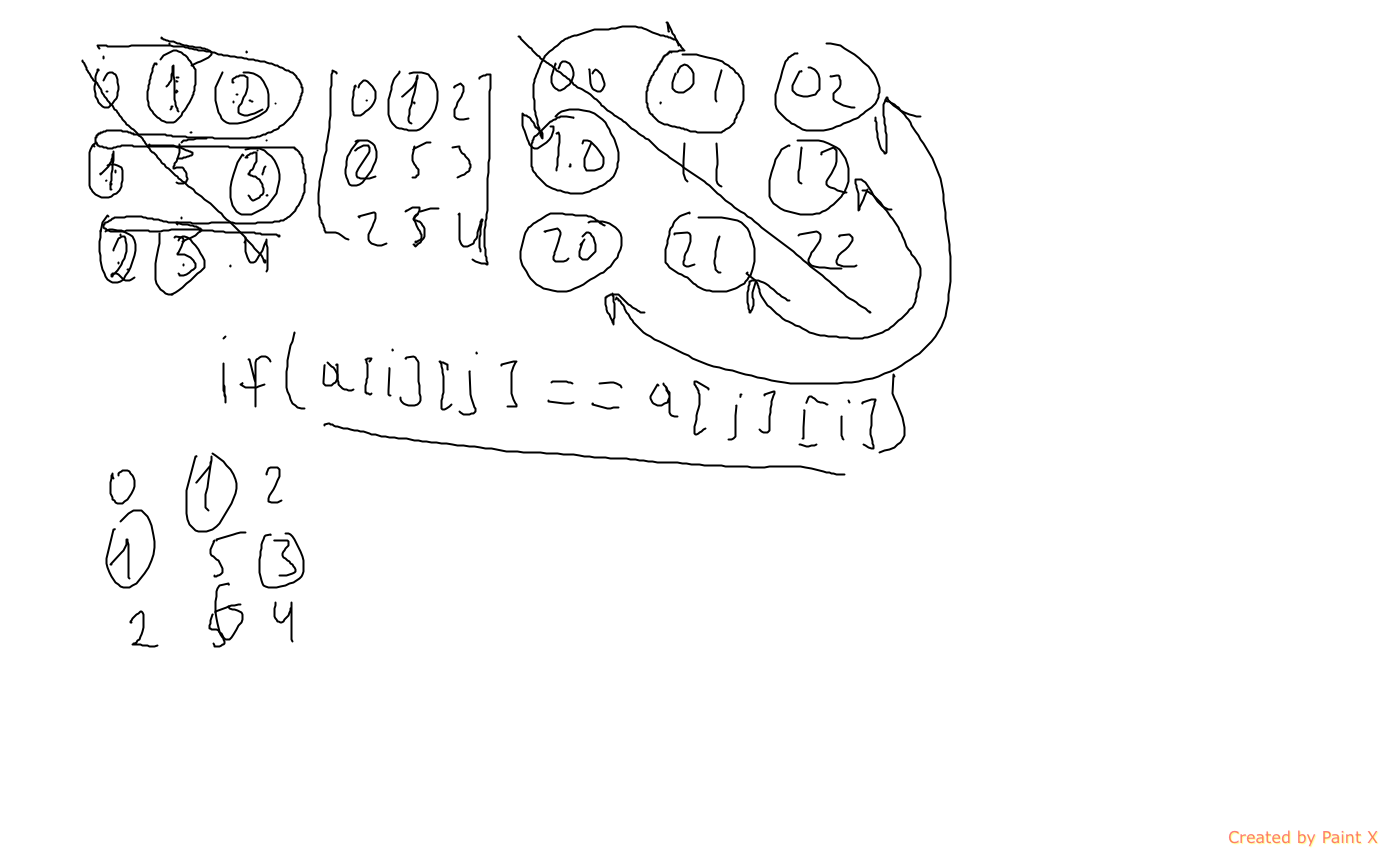 0 1 2
1 5 3
2 3 4
0 1 2
2 5 3
2 3 4
00 01 02
10 11 12
20 21 22
if(a[i][j] == a[j][i])
0 1 2
1 5 3
2 4
Created by Paint X